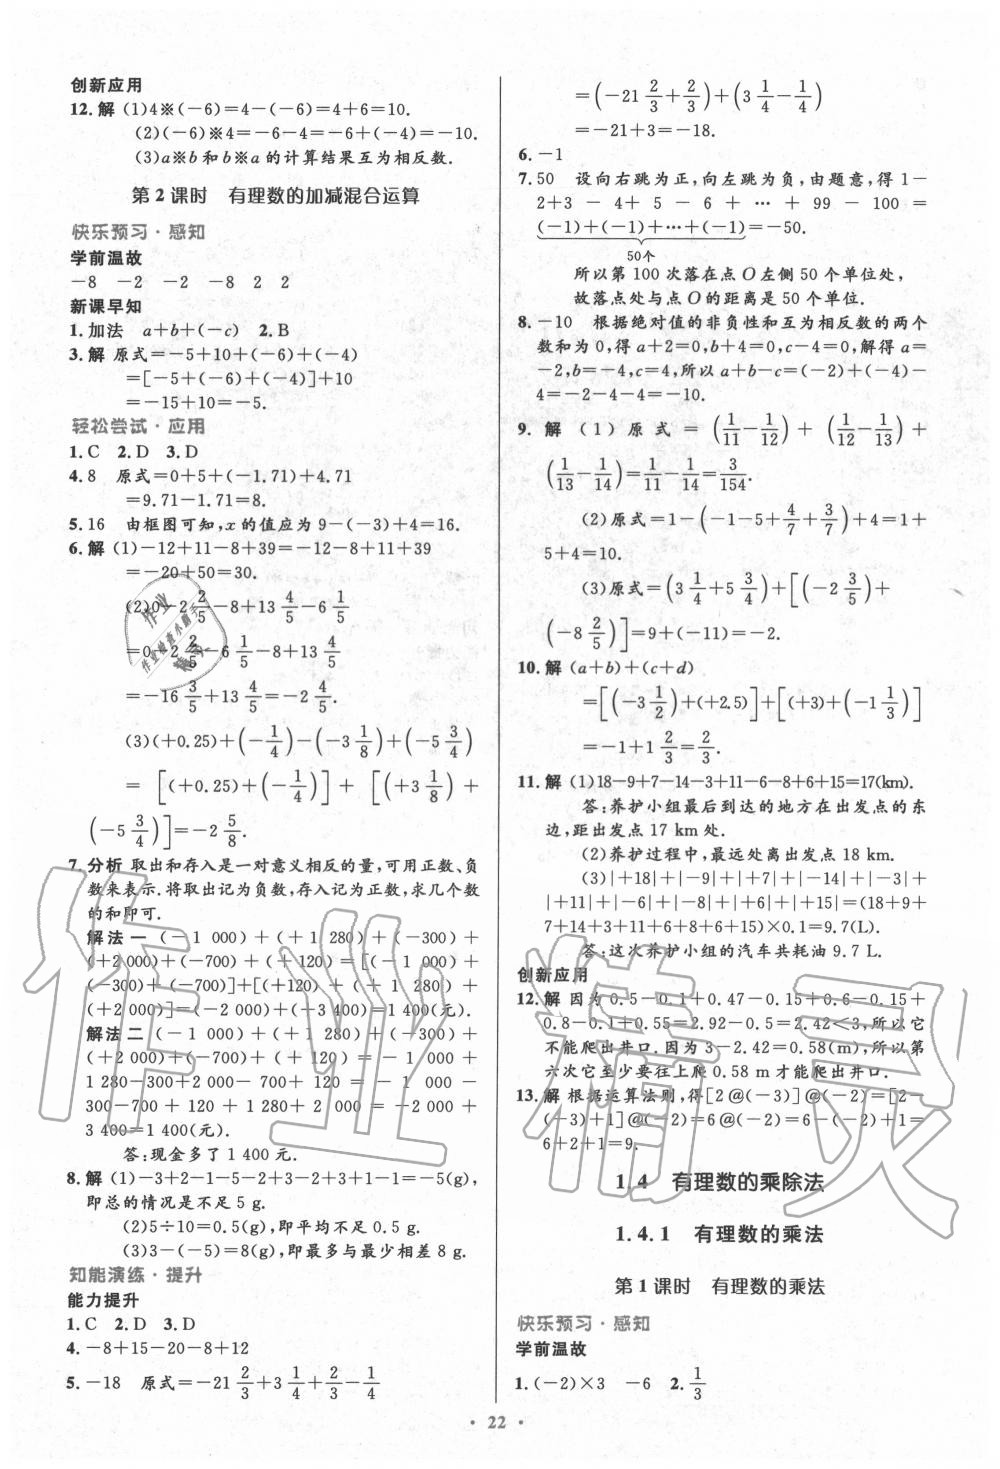 创新应用
12.解 (1)4※(－6)＝4－(－6)＝4＋6＝10.
(2)(－6)※4＝－6－4＝－6＋(－4)＝－10.
(3)a※b 和 b※a 的计算结果互为相反数.
第 2 课时 有理数的加减混合运算
快乐预习·感知
学前温故
－8 －2 －2 －8 2 2
新课早知
1.加法 a＋b＋(－c) 2.B
3.解 原式＝－5＋10＋(－6)＋(－4)
＝[－5＋(－6)＋(－4)]＋10
＝－15＋10＝－5.
轻松尝试·应用
1.C 2.D 3.D
4.8 原式＝0＋5＋(－1.71)＋4.71
＝9.71－1.71＝8.
5.16 由框图可知,x 的值应为 9－(－3)＋4＝16.
6.解 (1)－12＋11－8＋39＝－12－8＋11＋39
＝－20＋50＝30.
(2)0－2 2/5－8＋13 4/5－6 1/5
＝0－2 2/5－6 1/5－8＋13 4/5
＝－16 3/5＋13 4/5＝－2 4/5.
(3)(＋0.25)＋(－1/4)－(－3 1/8)＋(－5 3/4)
＝[(＋0.25)＋(－1/4)]＋[(＋3 1/8)＋
(－5 3/4)]＝－2 5/8.
7.分析 取出和存入是一对意义相反的量,可用正数、负
数来表示.将取出记为负数,存入记为正数,求几个数
的和即可.
解法一 (－1 000)＋(＋1 280)＋(－300)＋
(＋2 000)＋(－700)＋(＋120)＝[(－1 000)＋
(－300)＋(－700)]＋[(＋120)＋(＋1 280)＋
(＋2 000)]＝(－2 000)＋(＋3 400)＝1 400(元).
解法二 (－1 000)＋(＋1 280)＋(－300)＋
(＋2 000)＋(－700)＋(＋120)＝－1 000＋
1 280－300＋2 000－700＋120＝－1 000－
300－700＋120＋1 280＋2 000＝－2 000＋
3 400＝1 400(元).
答:现金多了 1 400 元.
8.解 (1)－3＋2－1－5－2＋3－2＋3＋1－1＝－5(g),
即总的情况是不足 5 g.
(2)5÷10＝0.5(g),即平均不足 0.5 g.
(3)3－(－5)＝8(g),即最多与最少相差 8 g.
知能演练·提升
能力提升
1.C 2.D 3.D
4.－8＋15－20－8＋12
5.－18 原式＝－21 2/3＋3 1/4＋2/3－1/4
＝(－21 2/3＋2/3)＋(3 1/4－1/4)
＝－21＋3＝－18.
6.－1
7.50 设向右跳为正,向左跳为负,由题意,得 1－
2＋3－4＋5－6＋…＋99－100＝
(－1)＋(－1)＋…＋(－1)＝－50.
50个
所以第 100 次落在点 O 左侧 50 个单位处,
故落点处与点 O 的距离是 50 个单位.
8.－10 根据绝对值的非负性和互为相反数的两个
数和为 0,得 a＋2＝0,b＋4＝0,c－4＝0,解得 a＝
－2,b＝－4,c＝4,所以 a＋b－c＝(－2)＋(－4)－
4＝－2－4－4＝－10.
9.解 (1)原式＝(1/11－1/12)＋(1/12－1/13)＋
(1/13－1/14)＝1/11－1/14＝3/154.
(2)原式＝1－(－1－5＋4/7＋3/7)＋4＝1＋
5＋4＝10.
(3)原式＝(3 1/4＋5 3/4)＋[(－2 3/5)＋
(－8 2/5)]＝9＋(－11)＝－2.
10.解 (a＋b)＋(c＋d)
＝[(－3 1/2)＋(＋2.5)]＋[(＋3)＋(－1 1/3)]
＝－1＋1 2/3＝2/3.
11.解 (1)18－9＋7－14－3＋11－6－8＋6＋15＝17(km).
答:养护小组最后到达的地方在出发点的东
边,距出发点 17 km 处.
(2)养护过程中,最远处离出发点 18 km.
(3)|＋18|＋|－9|＋|＋7|＋|－14|＋|－3|＋
|＋11|＋|－6|＋|－8|＋|＋6|＋|＋15|＝(18＋9＋
7＋14＋3＋11＋6＋8＋6＋15)×0.1＝9.7(L).
答:这次养护小组的汽车共耗油 9.7 L.
创新应用
12.解 因为 0.5－0.1＋0.47－0.15＋0.6－0.15＋
0.8－0.1＋0.55＝2.92－0.5＝2.42＜3,所以它
不能爬出井口.因为 3－2.42＝0.58(m),所以第
六次它至少要往上爬 0.58 m 才能爬出井口.
13.解 根据运算法则,得[2@(－3)]@(－2)＝[2－
(－3)＋1]@(－2)＝6@(－2)＝6－(－2)＋1＝
6＋2＋1＝9.
1.4 有理数的乘除法
1.4.1 有理数的乘法
第 1 课时 有理数的乘法
快乐预习·感知
学前温故
1.(－2)×3 －6 2.1/3
· 22 ·
作业精灵
作业
作业检查小助手
精灵